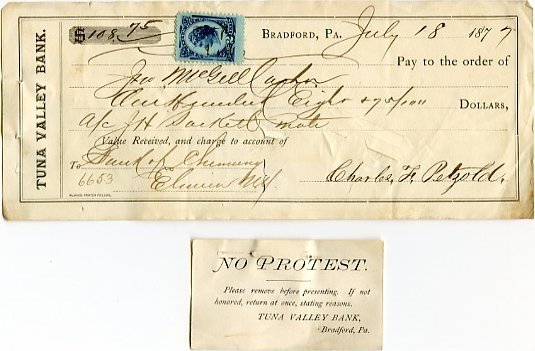 TUNA VALLEY BANK.
$ 108 75
BRADFORD, PA. July 18 1877
Pay to the order of
Jno McGill Cashr
One Hundred Eight & 75/100 DOLLARS,
a/c J H Sackett note
Value Received, and charge to account of
To Bank of Chemung
6653 Elmira NY Charles H. Petzold.
NO PROTEST.
Please remove before presenting. If not
honored, return at once, stating reasons.
TUNA VALLEY BANK,
Bradford, Pa.